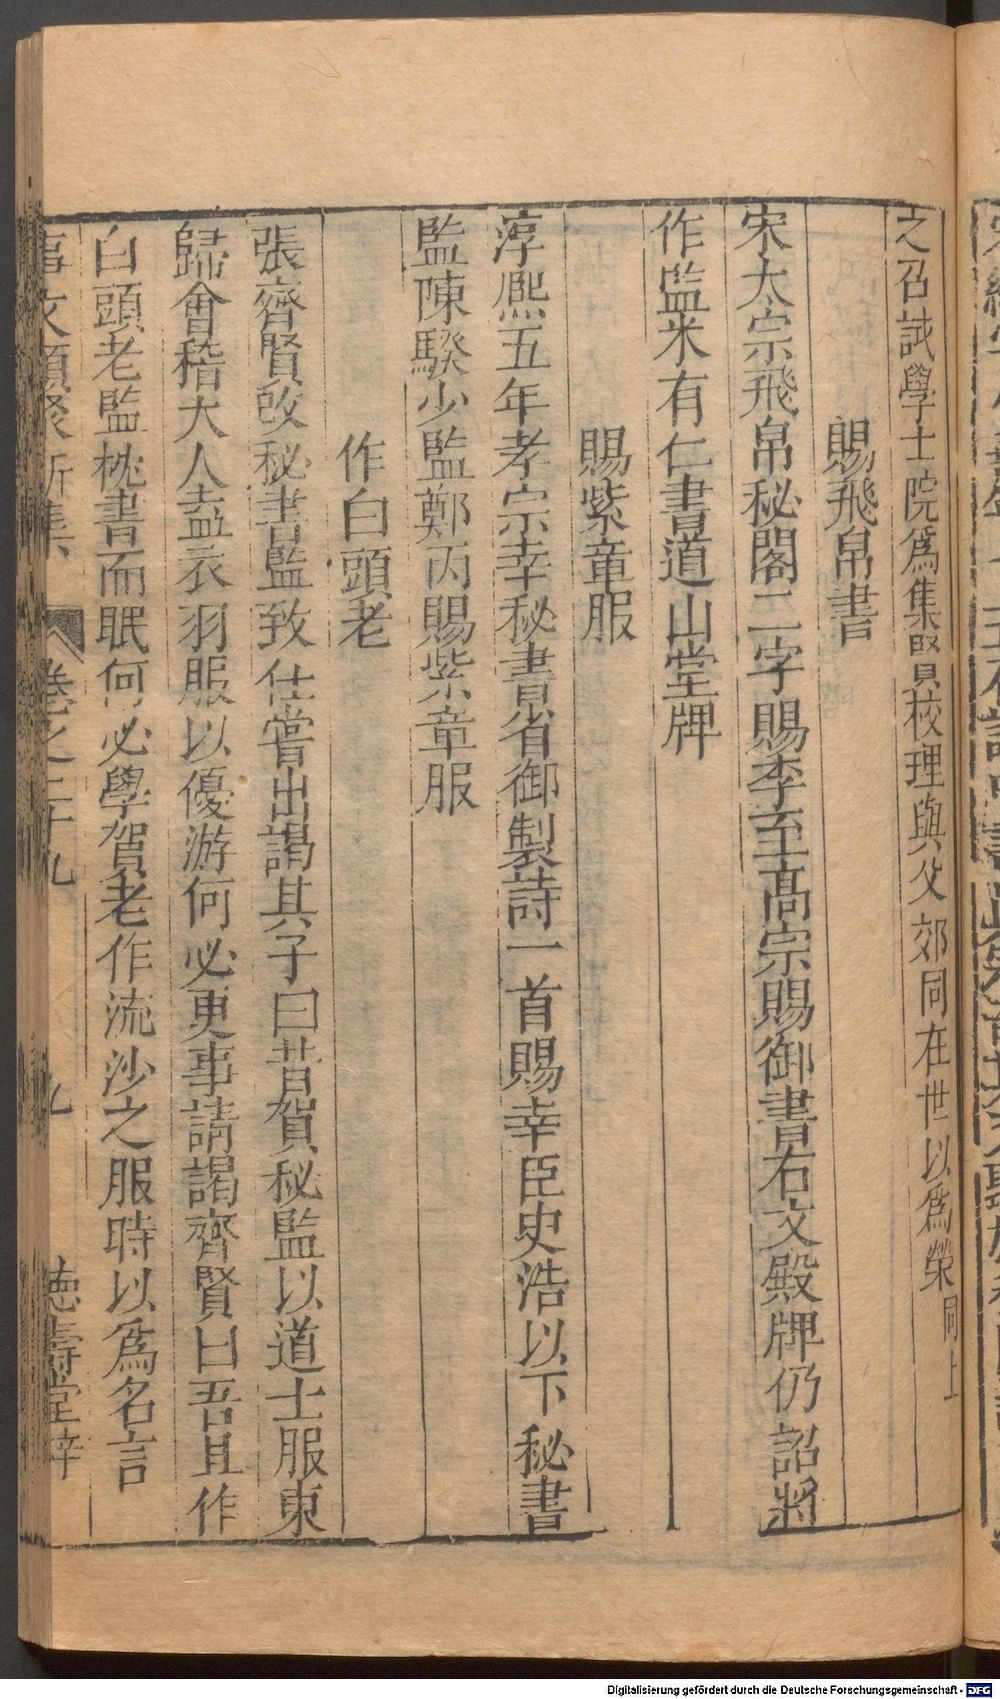 之召試學士院爲集賢校理與父郊同在世以爲榮同上
賜飛帛書
宋太宗飛帛秘閣二字賜李至高宗賜御書右文殿牌仍詔將
作監米有仁書道山堂牌
賜紫章服
淳熈五年孝宗幸秘書省御製詩一首賜幸臣史浩以下秘書
監陳騤少監鄭丙賜紫章服
作白頭老
張齊賢改秘書監致仕嘗出謁其子曰昔賀秘監以道士服東
歸會稽大人盍衣羽服以優游何必更事請謁齊賢曰吾且作
白頭老監枕書而眠何必學賀老作流沙之服時以爲名言
事文類聚新集 卷之二十九 九 德壽堂梓
Digitalisierung gefördert durch die Deutsche Forschungsgemeinschaft - DFG